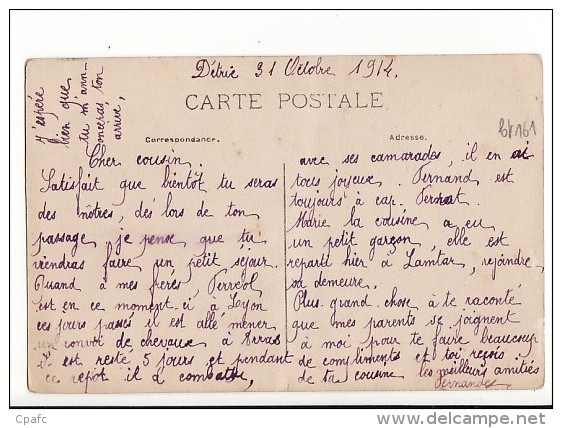 Détrie 31 Octobre 1914.
CARTE POSTALE
Correspondance.
Adresse.
J'espère
bien que
tu m'ann-
onceras, ton
arrivé,
Cher cousin.
Satisfait que bientôt tu seras
des nôtres, dès lors de ton
passage, je pense que tu
viendras faire un petit sejour.
Quand à mes frères, Perréol
est en ce moment-ci à Leyon
ces jours passés il est allé mener
un convoi de chevaux à Arras
il est resté 5 jours et pendant
ce repôt il à combattu,
avec ses camarades, il en est
tous joyeux. Fernand est
toujours à cap. Fernat.
Marie la cousine a eu
un petit garçon, elle est
reparti hier à Lamtar, rejoindre,
sa demeure.
Plus grand chose à te raconté
que mes parents se joignent
à moi pour te faire beaucoup
de compliments et toi reçois
de ta cousine les meilleurs amitiés
Fernande
Cpafc
www.delcampe.net